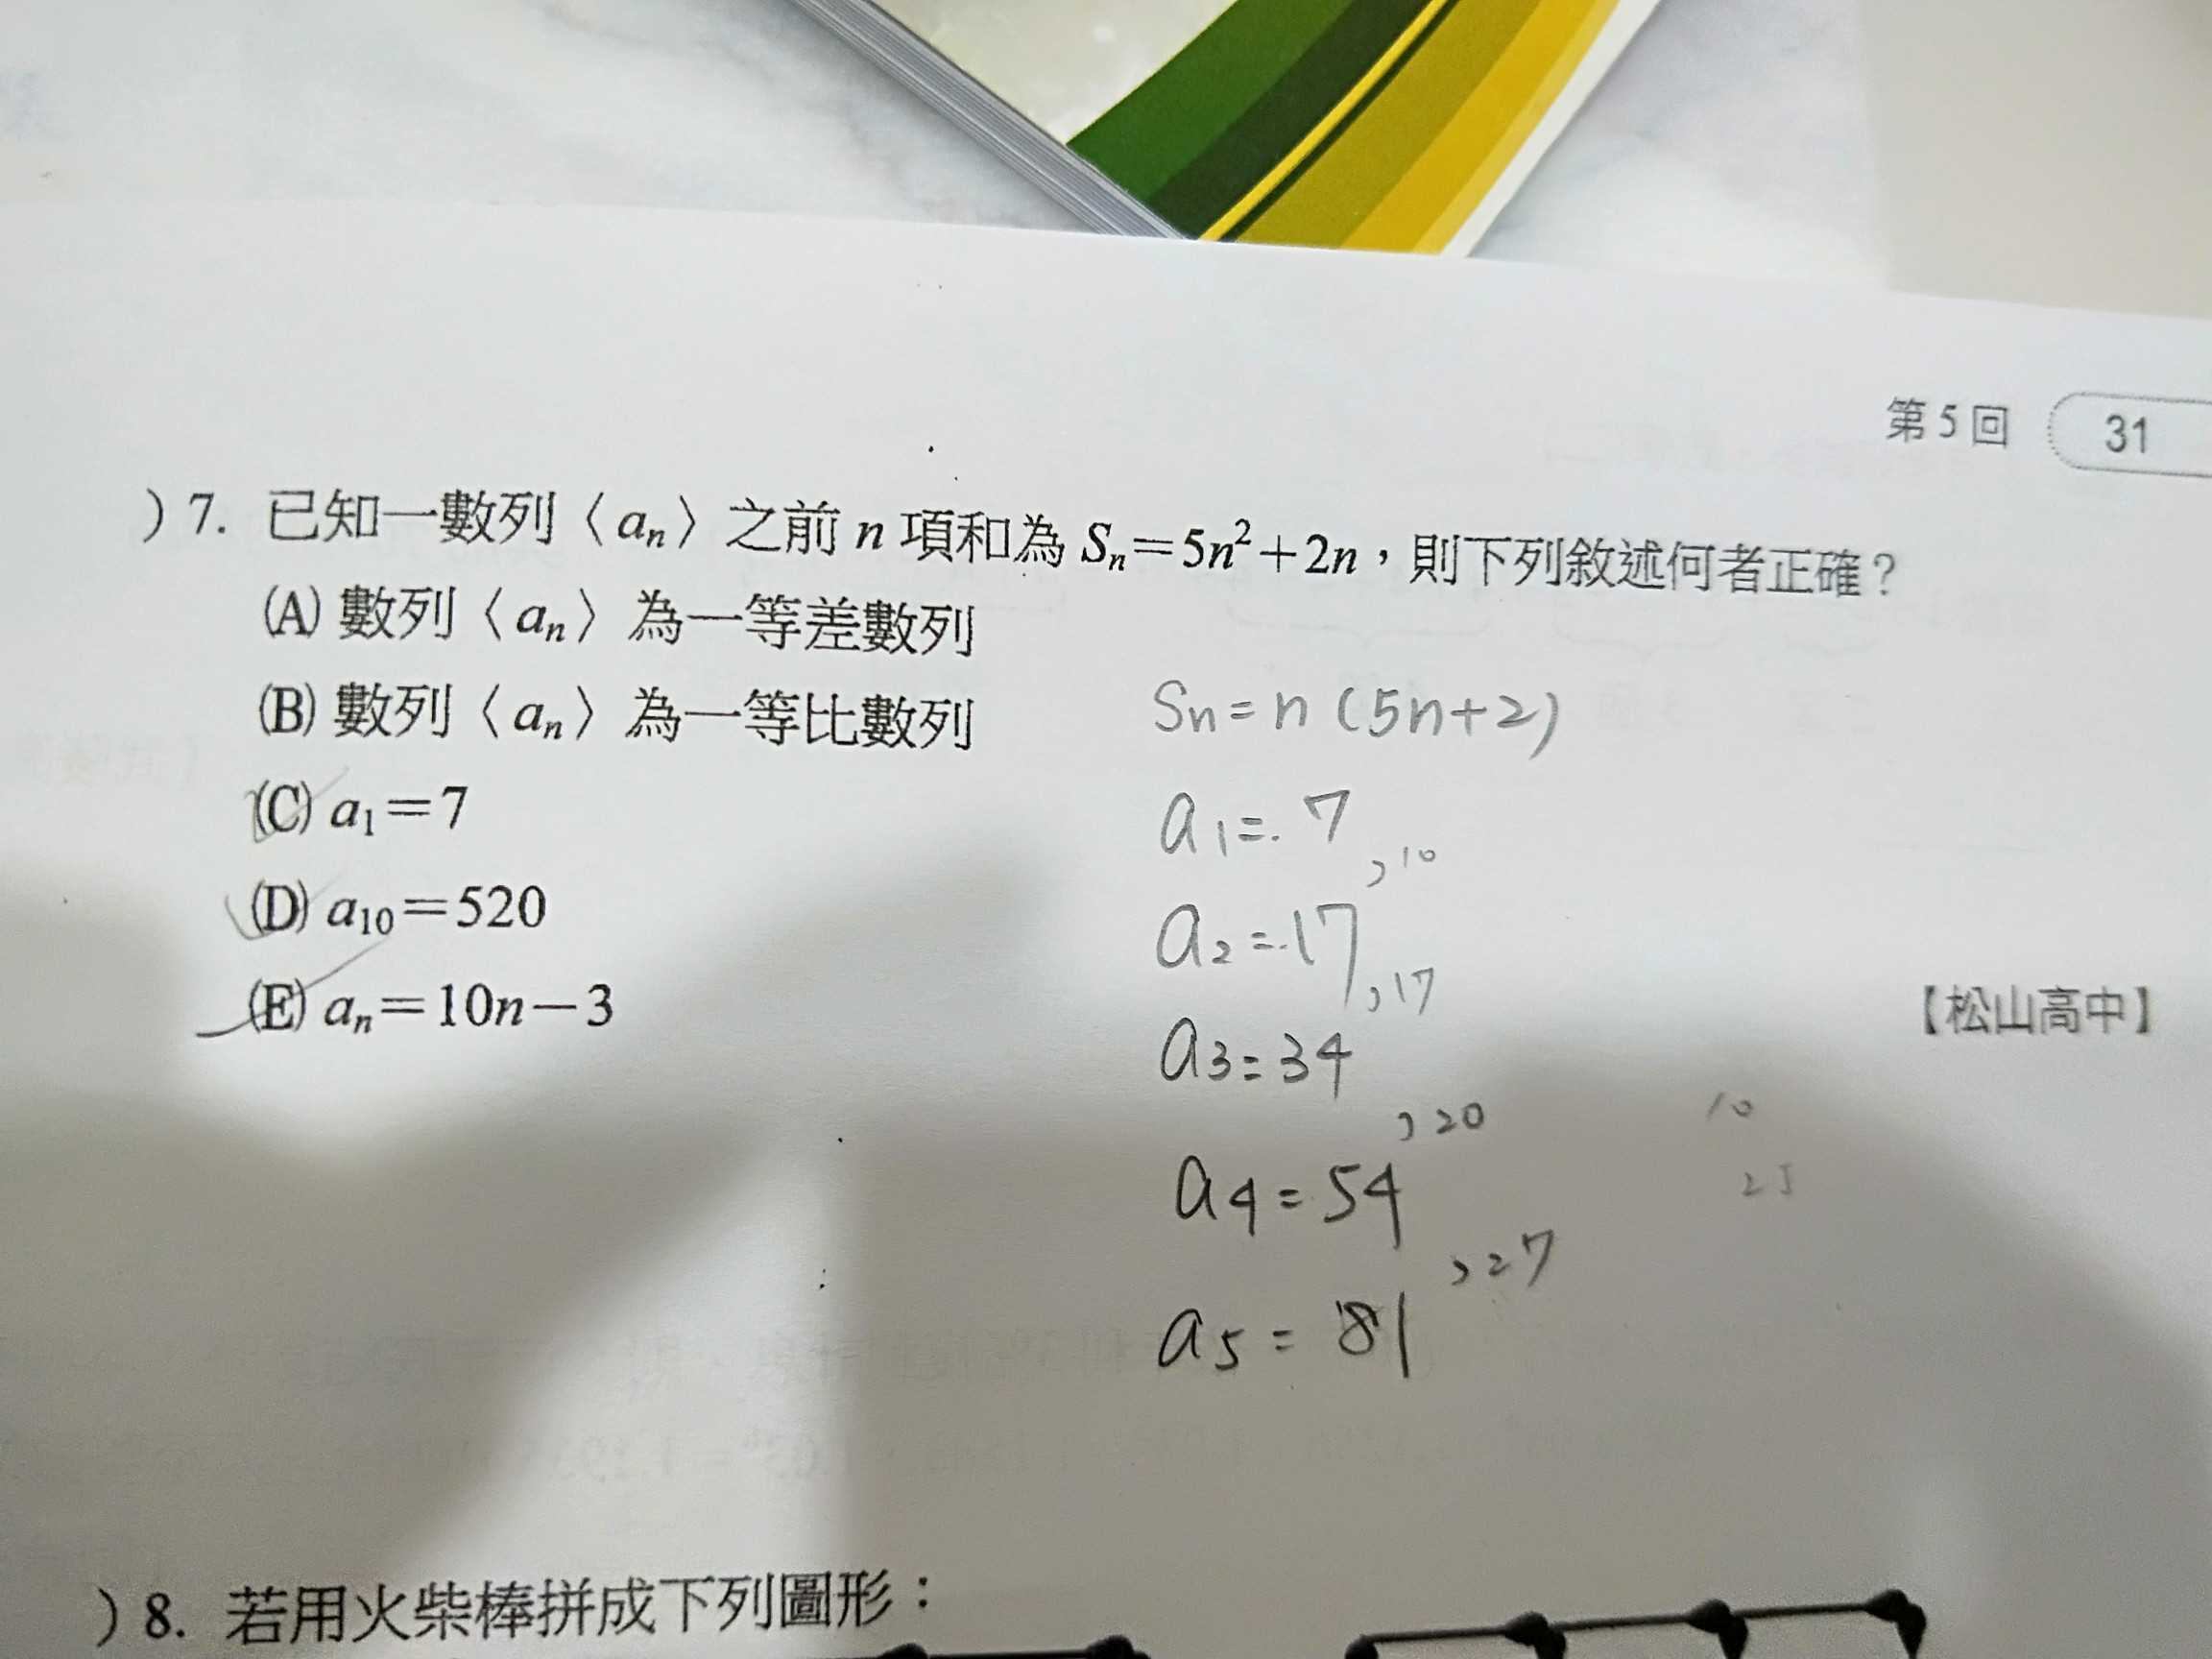 第5回 31
)7. 已知一數列〈aₙ〉之前 n 項和為 Sₙ=5n²+2n，則下列敘述何者正確？
(A) 數列〈aₙ〉為一等差數列
(B) 數列〈aₙ〉為一等比數列
Sn=n(5n+2)
(C) a₁=7
a1=.7
,10
(D) a₁₀=520
a2=.17
,17
(E) aₙ=10n−3
【松山高中】
a3=34
,20
10
a4=54
25
,27
a5=81
)8. 若用火柴棒拼成下列圖形：